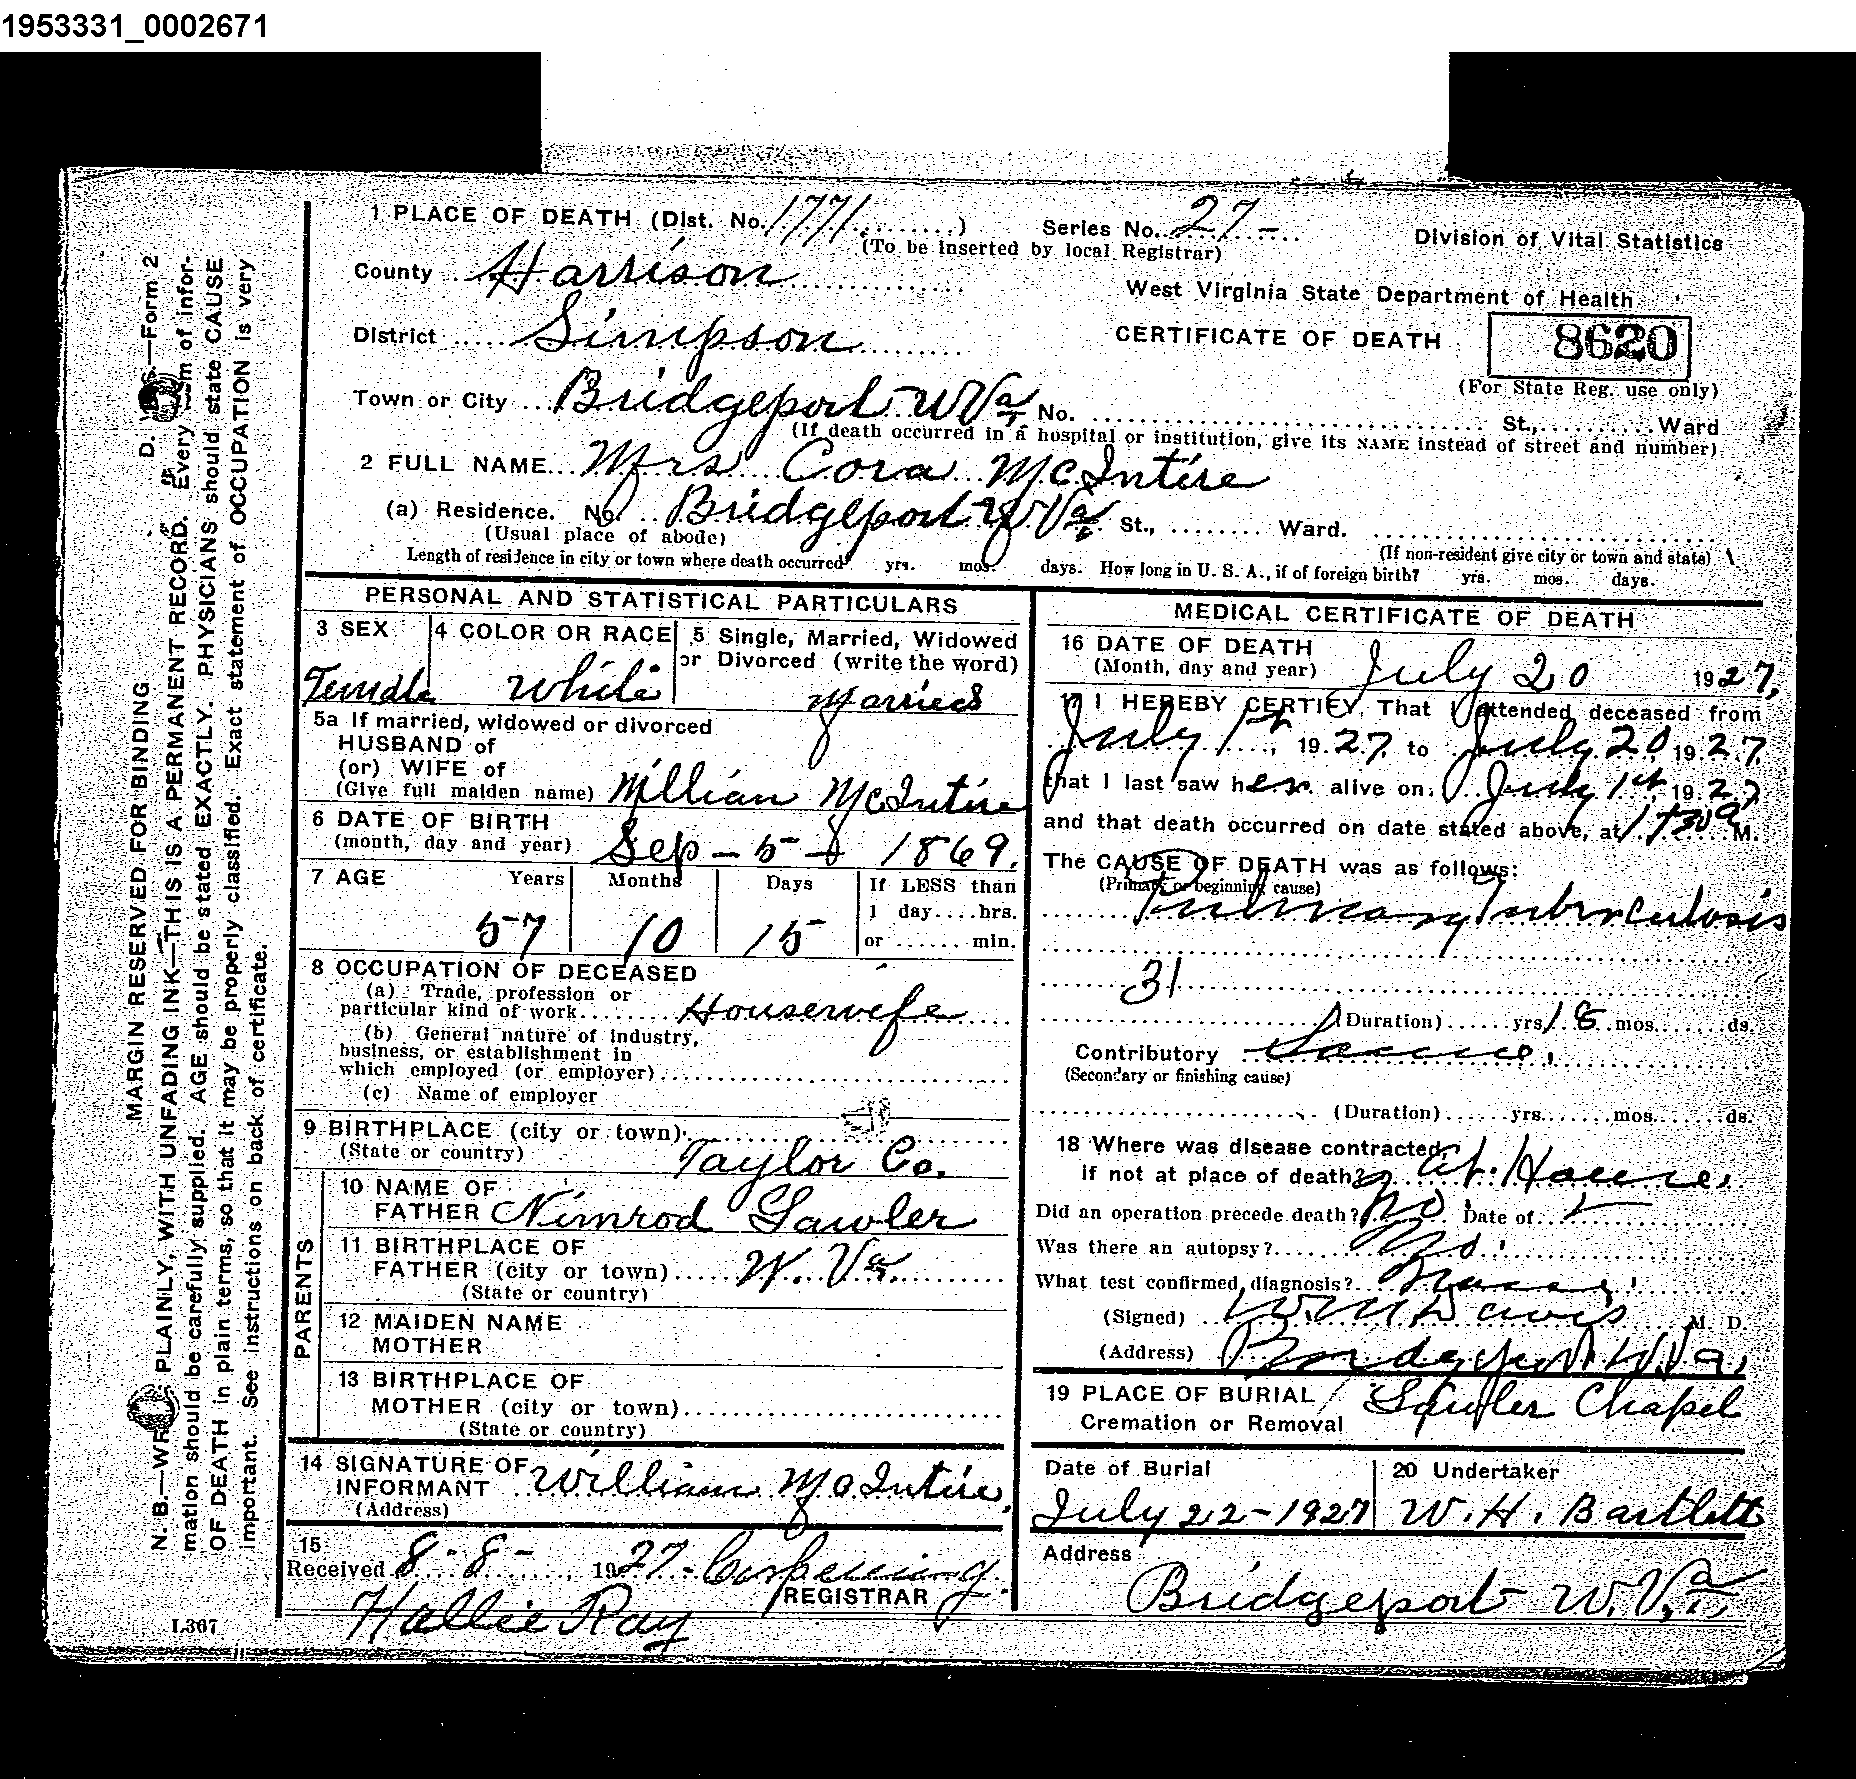 1953331_0002671
1 PLACE OF DEATH (Dist. No. 1771 ) Series No. 27 -
(To be inserted by local Registrar)
Division of Vital Statistics
County Harrison
West Virginia State Department of Health
District Simpson
CERTIFICATE OF DEATH 8620
(For State Reg. use only)
Town or City Bridgeport W Va No. St., Ward
(If death occurred in a hospital or institution, give its NAME instead of street and number)
2 FULL NAME Mrs Cora McIntire
(a) Residence. No. Bridgeport W Va St., Ward.
(Usual place of abode) (If non-resident give city or town and state)
Length of residence in city or town where death occurred yrs. mos. days. How long in U. S. A., if of foreign birth? yrs. mos. days.
PERSONAL AND STATISTICAL PARTICULARS
3 SEX 4 COLOR OR RACE 5 Single, Married, Widowed
or Divorced (write the word)
Female White Married
5a If married, widowed or divorced
HUSBAND of
(or) WIFE of
(Give full maiden name) Willian McIntire
6 DATE OF BIRTH
(month, day and year) Sep - 5 - 1869.
7 AGE Years Months Days If LESS than
1 day....hrs.
57 10 15 or ...... min.
8 OCCUPATION OF DECEASED
(a) Trade, profession or
particular kind of work Housewife
(b) General nature of industry,
business, or establishment in
which employed (or employer)
(c) Name of employer
9 BIRTHPLACE (city or town)
(State or country) Taylor Co.
PARENTS
10 NAME OF
FATHER Nimrod Lawler
11 BIRTHPLACE OF
FATHER (city or town) W. Va.
(State or country)
12 MAIDEN NAME
MOTHER
13 BIRTHPLACE OF
MOTHER (city or town)
(State or country)
14 SIGNATURE OF
INFORMANT William McIntire,
(Address)
15
Received 8 - 8 - 1927
REGISTRAR
Hallie Ray
MEDICAL CERTIFICATE OF DEATH
16 DATE OF DEATH
(Month, day and year) July 20 1927,
17 I HEREBY CERTIFY, That I attended deceased from
July 1st, 1927 to July 20 1927,
that I last saw her alive on July 1st 1927
and that death occurred on date stated above, at M.
The CAUSE OF DEATH was as follows:
(Primary or beginning cause)
Pulmonary Tuberculosis
31
(Duration) yrs 18 mos. ds.
Contributory Same.
(Secondary or finishing cause)
(Duration) yrs. mos. ds.
18 Where was disease contracted,
if not at place of death? at Home.
Did an operation precede death? No. Date of
Was there an autopsy? No.
What test confirmed diagnosis?
(Signed) Davis M. D.
(Address) Bridgeport W.Va,
19 PLACE OF BURIAL Lawler Chapel
Cremation or Removal
Date of Burial 20 Undertaker
July 22-1927 W. H. Bartlett
Address
Bridgeport W. Va.
MARGIN RESERVED FOR BINDING
N. B.—WRITE PLAINLY, WITH UNFADING INK—THIS IS A PERMANENT RECORD. Every item of infor-
mation should be carefully supplied. AGE should be stated EXACTLY. PHYSICIANS should state CAUSE
OF DEATH in plain terms, so that it may be properly classified. Exact statement of OCCUPATION is very
important. See instructions on back of certificate.
—Form 2
L367